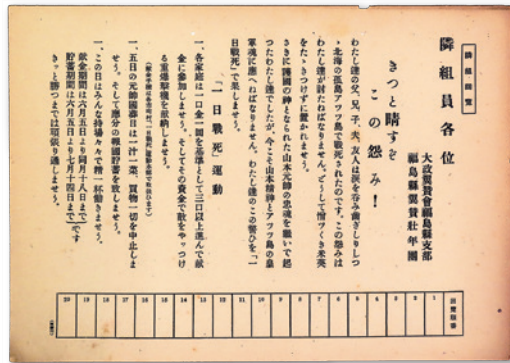 隣組回覧
隣組員各位
大政翼賛會福島縣支部
福島縣翼賛壮年團
きつと晴すぞ
この怨み!
わたし達の父、兄、子、夫、友人は涙を呑み歯ぎしりしつ
ゝ北海の孤島アツツ島で戦死されたのです。この怨みは
わたし達が討たねばなりません。どうして憎つくき米英
をたゝきつけずに置かれませう。
さきに護國の神となられた山本元帥の忠魂を継いで起
つたわたし達でしたが、今こそ山本精神とアツツ島の皇
軍魂に應へねばなりません。わたし達のこの誓ひを「一
日戦死」で果しませう。
「一日戦死」運動
一、各家庭は一口金一圓を基準として三口以上進んで献
金に参加しませう。そしてその資金で敵をやつつけ
る重爆撃機を献納しませう。
一、五日の元帥國葬日は一汁一菜、買物一切を中止しま
せう。そして應分の報國貯蓄を致しませう。
一、この日はみんな持場々々で精一杯働きませう。
献金期間は六月五日より同月十八日まで
貯蓄期間は六月五日より七月十四日まで です
きつと勝つまでは頑張り通しませう。
回覧順番
1
2
3
4
5
6
7
8
9
10
11
12
13
14
15
16
17
18
19
20